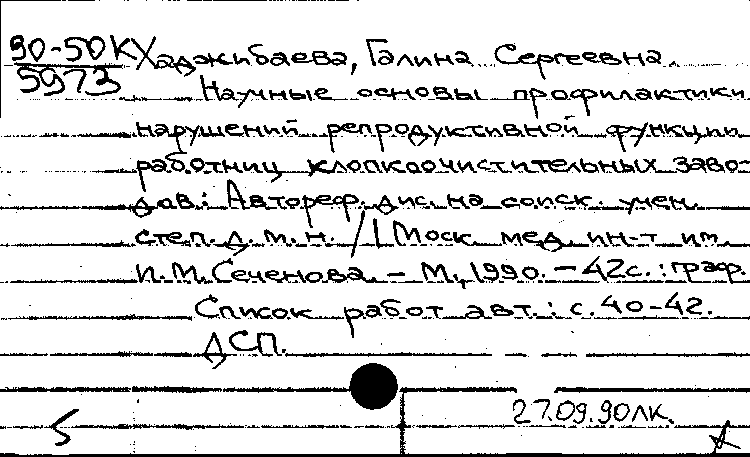 90-50К Хаджибаева, Галина Сергеевна.
5973 Научные основы профилактики
нарушений репродуктивной функции
работниц хлопкоочистительных заво-
дов: Автореф. дис. на соиск. учен.
степ. д. м. н. / 1 Моск. мед. ин-т им.
И. М. Сеченова. - М., 1990. - 42с.: граф.
Список работ авт.: с. 40-42.
ДСП.
27.09.90ЛК.